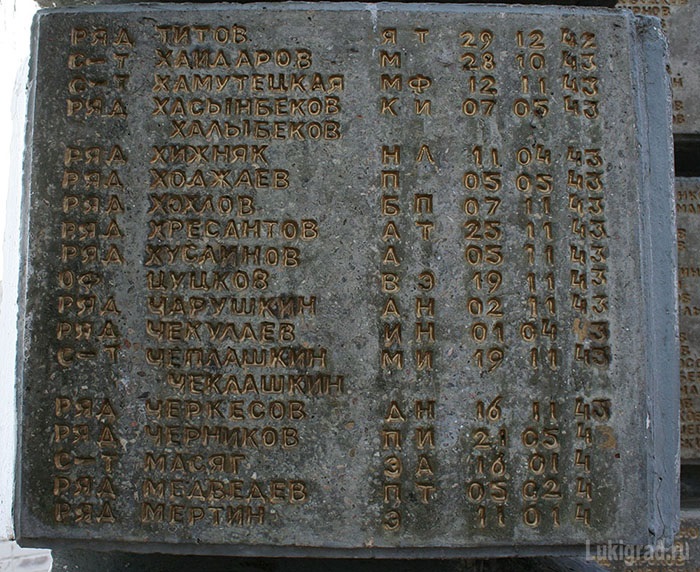 РЯД ТИТОВ Я Т 29 12 42
С-Т ХАЙДАРОВ М 28 10 43
С-Т ХАМУТЕЦКАЯ М Ф 12 11 43
РЯД ХАСЫНБЕКОВ К И 07 05 43
ХАЛЫБЕКОВ
РЯД ХИЖНЯК Н Л 11 04 43
РЯД ХОДЖАЕВ П 05 05 43
РЯД ХОХЛОВ Б П 07 11 43
РЯД ХРЕСАНТОВ А Т 25 11 43
РЯД ХУСАИНОВ Д 05 11 43
ОФ ЦУЦКОВ В Э 19 11 43
РЯД ЧАРУШКИН А Н 02 11 43
РЯД ЧЕХУЛАЕВ И Н 01 04 43
С-Т ЧЕПЛАШКИН М И 19 11 43
ЧЕКЛАШКИН
РЯД ЧЕРКЕСОВ Д Н 16 11 43
РЯД ЧЕРНИКОВ П И 21 05 43
С-Т МАСЯГ Э А 16 01 4
РЯД МЕДВЕДЕВ П Т 05 02 4
РЯД МЕРТИН Э 11 01 4
Lukigrad.ru